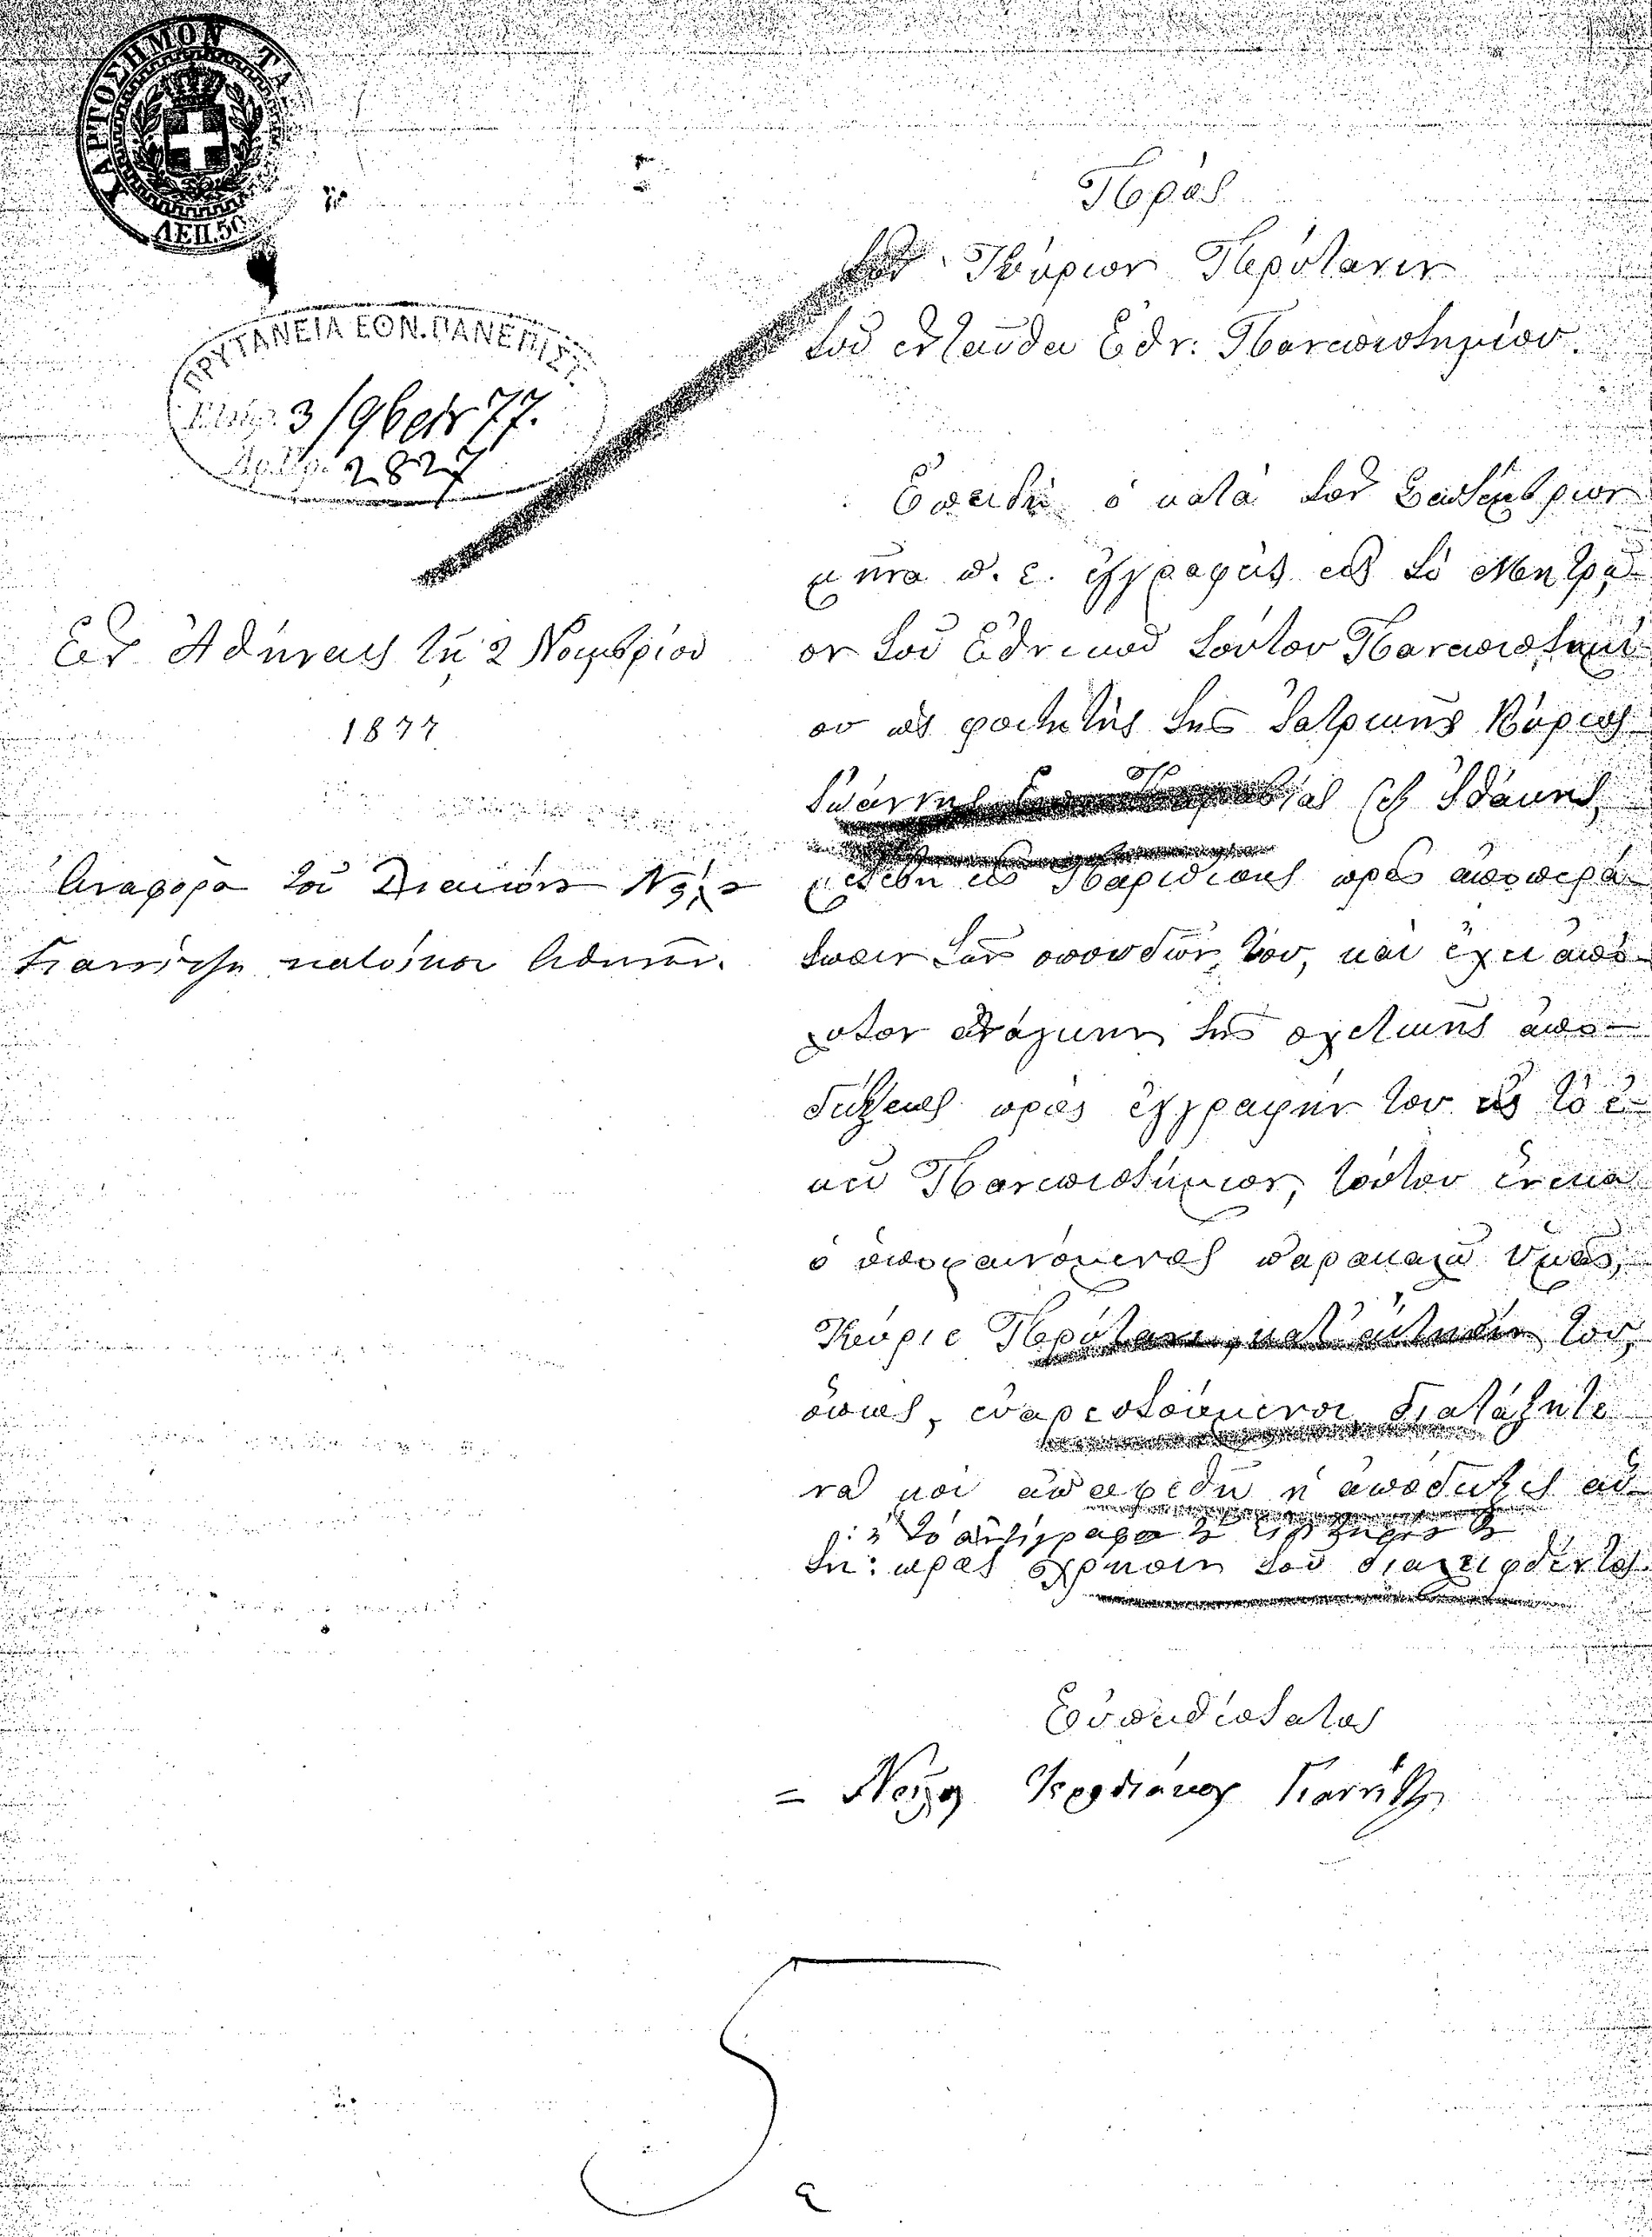 ΧΑΡΤΟΣΗΜΟΝ ΤΑ
ΛΕΠ. 50
ΠΡΥΤΑΝΕΙΑ ΕΘΝ. ΠΑΝΕΠΙΣΤ.
3/9βρ 77.
2827
Πρὸς
τὸν Κύριον Πρύτανιν
τοῦ ἐνταῦθα Ἐθν: Πανεπιστημίου.
Ἐν Ἀθήναις τῇ 2 Νοεμβρίου
1877
Ἀναφορὰ τοῦ Διακόνου
κατοίκου Ἀθηνῶν.
Ἐπειδὴ ὁ κατὰ τὸν Σεπτέμβριον
μῆνα π. ἔ. ἐγγραφεὶς εἰς τὸ Μητρῷ-
ον τοῦ Ἐθνικοῦ τούτου Πανεπιστημί-
ου ὡς φοιτητὴς τῆς Ἰατρικῆς Κύριος
Ἰωάννης ἐξ Ἰθάκης,
μετέβη εἰς Παρισίους πρὸς ἀποπερά-
τωσιν τῶν σπουδῶν του, καὶ ἔχει ἀπό-
λυτον ἀνάγκην τῆς σχετικῆς ἀπο-
δείξεως πρὸς ἐγγραφήν του εἰς τὸ ἐ-
κεῖ Πανεπιστήμιον, τούτου ἕνεκα
ὁ ὑποφαινόμενος παρακαλῶ Ὑμᾶς,
Κύριε Πρύτανι, κατ' αἴτησίν του,
ὅπως, εὐαρεστούμενοι, διατάξητε
νὰ μοὶ ἀποδοθῇ ἡ ἀπόδειξις αὕ-
ἢ τὸ ἀντίγραφον
τη: πρὸς χρῆσιν τοῦ διαληφθέντος.
Εὐπειθέστατος